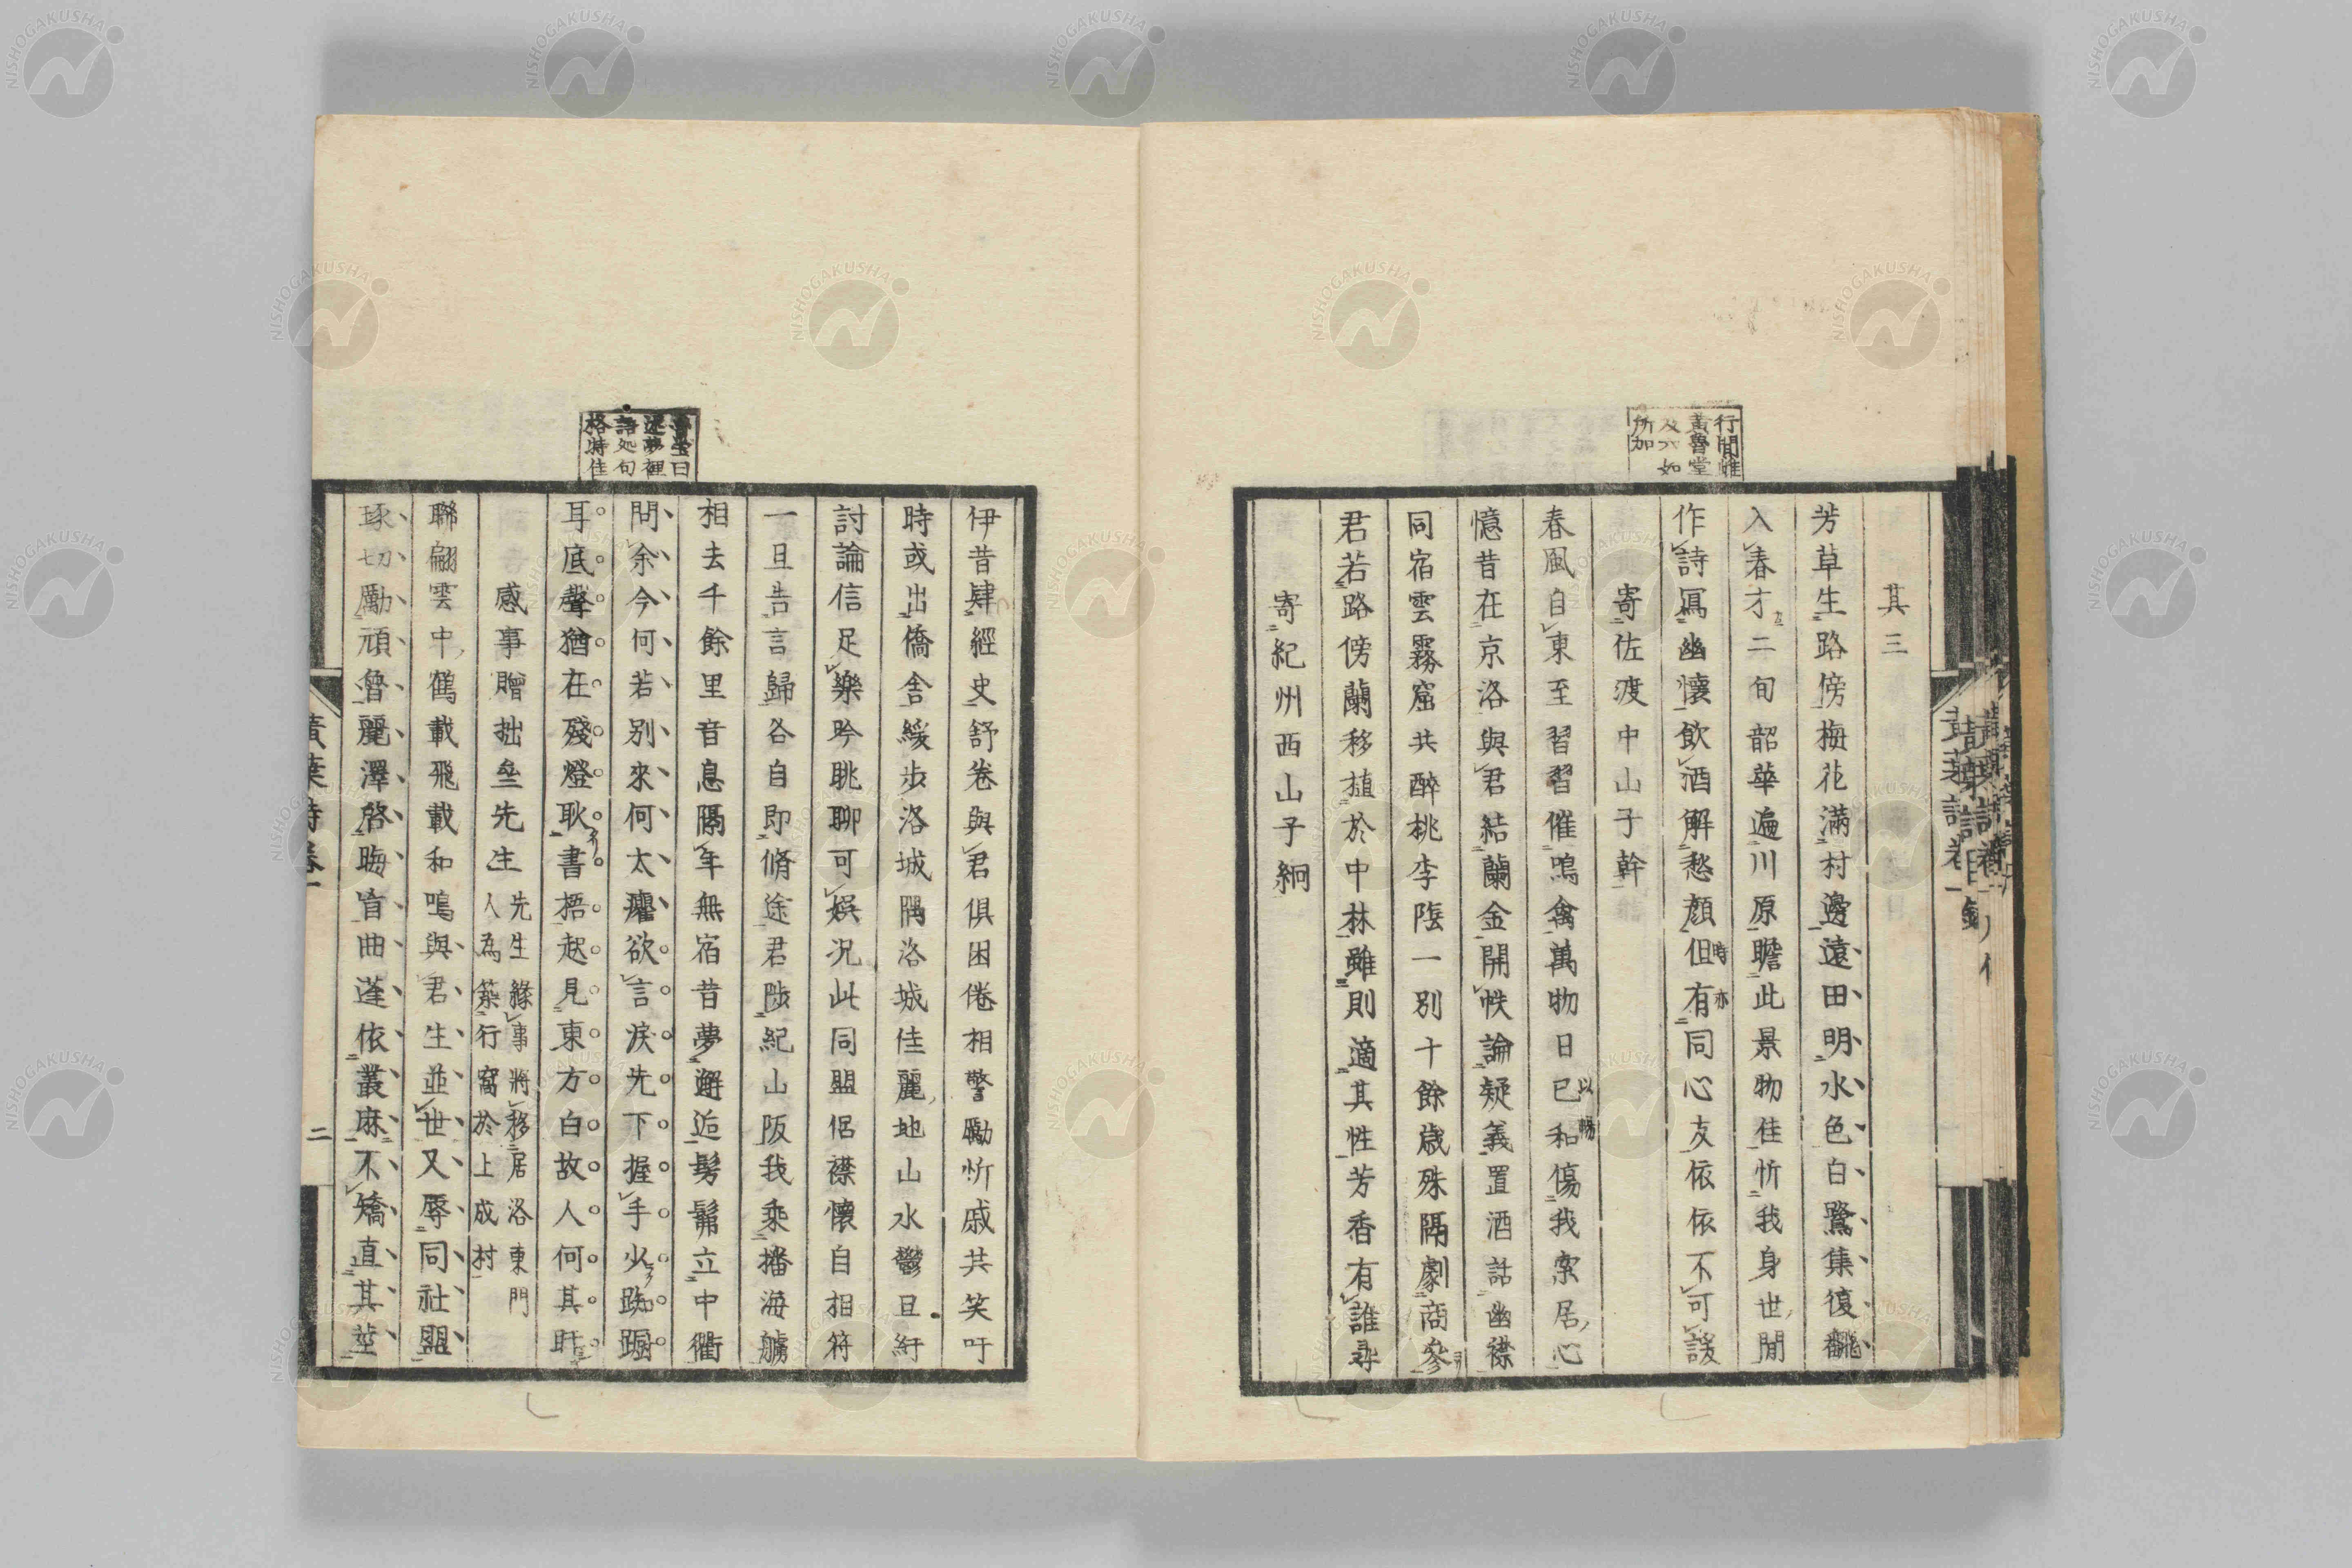 行間惟
黃魯堂
及六如
所加
其三
芳草生路傍梅花滿村邊遠田明水色白鷺集復翻
入春才二旬韶華遍川原瞻此景物佳忻我身世閒
作詩寫幽懷飲酒解愁顏但有同心友依依不可諼
時亦
寄佐渡中山子幹
春風自東至習習催鳴禽萬物日已和傷我索居心
以暢
憶昔在京洛與君結蘭金開帙論疑義置酒話幽襟
同宿雲霧窟共醉桃李陰一別十餘歲殊隔劇商參
君若路傍蘭移植於中林雖則適其性芳香有誰尋
寄紀州西山子絅
魯堂曰
逑夢裡
語処句
格特佳
伊昔肄經史舒卷與君俱困倦相警勵忻戚共笑吁
時或出僑舎緩步洛城隅洛城佳麗地山水鬱且紆
討論信足樂吟眺聊可娯況此同盟侶襟懷自相符
一旦告言歸各自即脩途君陟紀山阪我乘播海艫
相去千餘里音息隔年無宿昔夢邂逅髣髴立中衢
問余今何若別來何太癯欲言淚先下握手少踟躕
耳底聲猶在殘燈耿書梧起見東方白故人何其盱
感事贈拙叁先生
先生緣事將移居洛東門
人為築行窩於上成村
聯翩雲中鶴載飛載和鳴與君生並世又辱同社盟
琢切勵頑魯麗澤啓晦盲曲蓬依叢麻不矯直其莖
黃葉詩卷一
二
NISHOGAKUSHA